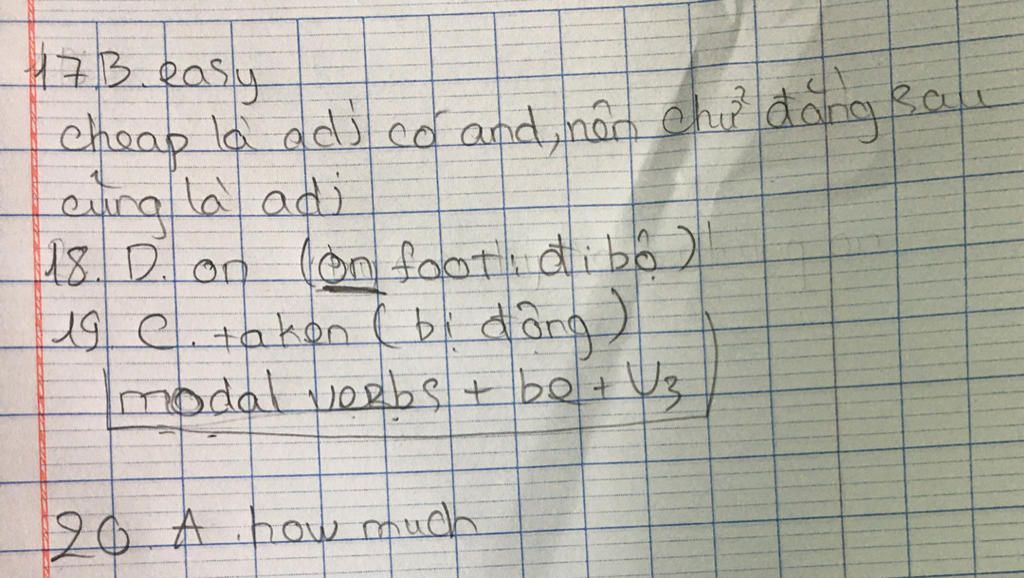 17.B. easy
cheap là adj có and, nên chữ đằng sau
cũng là adj
18. D. on (on foot: đi bộ)
19. C. taken (bị động)
modal verbs + be + V3
20. A. how much